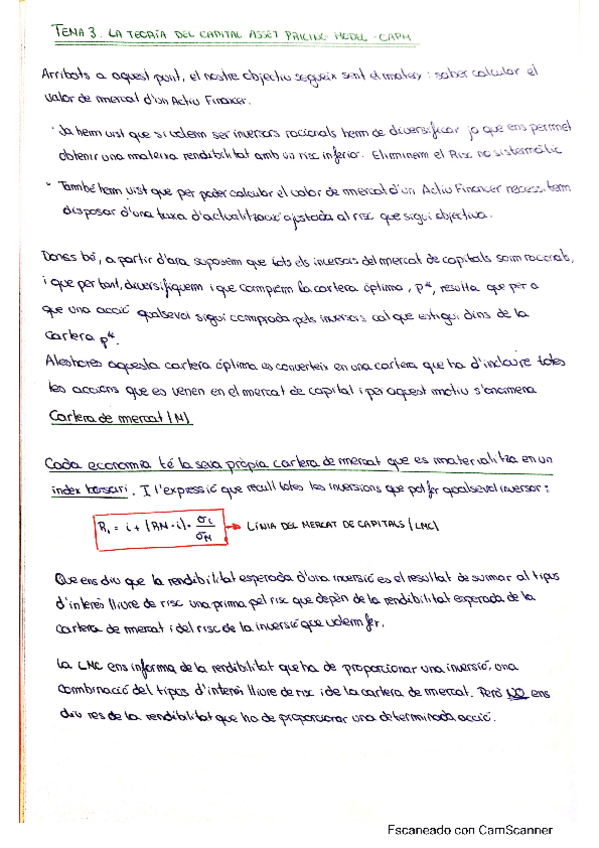 TEMA 3. LA TEORÍA DEL CAPITAL ASSET PRICING MODEL - CAPM
Arribats a aquest punt, el nostre objectiu segueix sent el mateix: saber calcular el
valor de mercat d'un Actiu Financer.
· Ja hem vist que si volem ser inversors racionals hem de diversificar ja que ens permet
obtenir una mateixa rendibilitat amb un risc inferior. Eliminem el Risc no sistemàtic
· També hem vist que per poder calcular el valor de mercat d'un Actiu Financer necessitem
disposar d'una taxa d'actualització ajustada al risc que sigui objectiva.
Doncs bé, a partir d'ara suposem que tots els inversors del mercat de capitals som racionals,
i que per tant, diversifiquem i que comprem la cartera òptima, p*, resulta que per a
que una acció qualsevol sigui comprada pels inversors cal que estigui dins de la
cartera p*.
Aleshores aquesta cartera òptima es converteix en una cartera que ha d'incloure totes
les accions que es venen en el mercat de capital i per aquest motiu s'anomena
Cartera de mercat (M)
Cada economia té la seva pròpia cartera de mercat que es materialitza en un
índex borsari. I l'expressió que recull totes les inversions que pot fer qualsevol inversor:
R₁ = i + (RM - i) · σ₁/σM → LÍNIA DEL MERCAT DE CAPITALS (LMC)
Que ens diu que la rendibilitat esperada d'una inversió es el resultat de sumar al tipus
d'interès lliure de risc una prima pel risc que depèn de la rendibilitat esperada de la
cartera de mercat i del risc de la inversió que volem fer.
La LMC ens informa de la rendibilitat que ha de proporcionar una inversió, una
combinació del tipus d'interès lliure de risc i de la cartera de mercat. Però NO ens
diu res de la rendibilitat que ha de proporcionar una determinada acció.
Escaneado con CamScanner